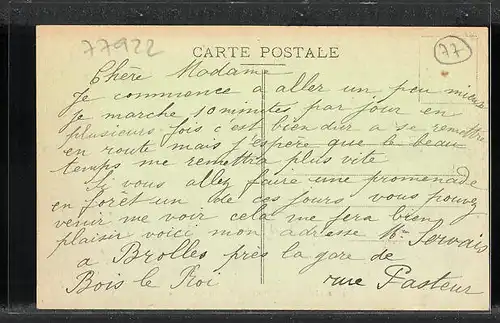 77922
77
CARTE POSTALE
Chère Madame
Je commence a aller un peu mieux
je marche 10 minutes par jour en
plusieurs fois c'est bien dur a se remettre
en route mais j'espère que le beau
temps me remettra plus vite
Si vous allez faire une promenade
en forêt un de ces jours vous pouvez
venir me voir cela me fera bien
plaisir voici mon adresse Mme Servais
a Brolles près la gare de
Bois le Roi rue Pasteur